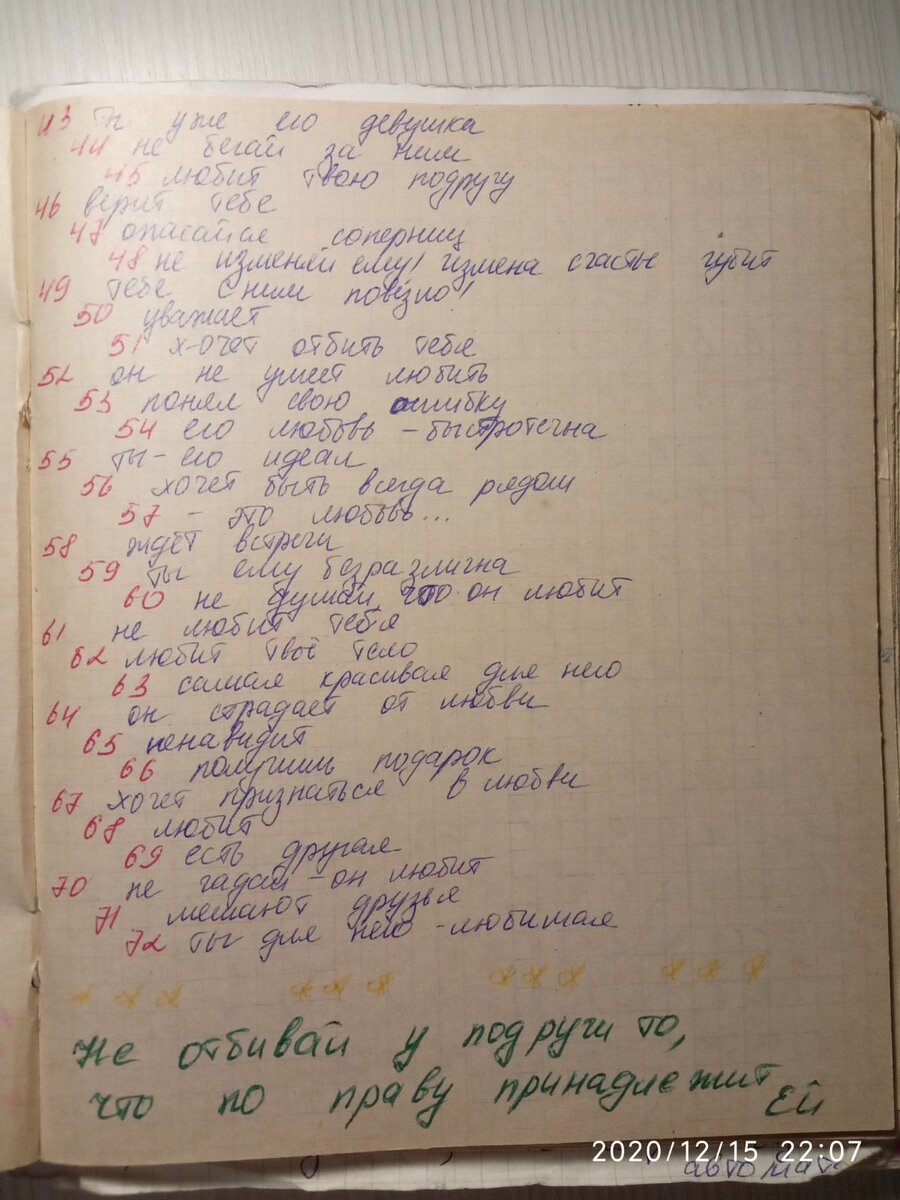 43 ты уже его девушка
44 не бегай за ним
45 любит твою подругу
46 верит тебе
47 опасайся соперниц
48 не изменяй ему! измена счастье губит
49 тебе с ним повезло!
50 уважает
51 хочет отбить тебя
52 он не умеет любить
53 понял свою ошибку
54 его любовь - быстротечна
55 ты - его идеал
56 хочет быть всегда рядом
57 - это любовь...
58 ждёт встречи
59 ты ему безразлична
60 не думай, что он любит
61 не любит тебя
62 любит твоё тело
63 самая красивая для него
64 он страдает от любви
65 ненавидит
66 получишь подарок
67 хочет признаться в любви
68 любит
69 есть другая
70 не гадай - он любит
71 мешают друзья
72 ты для него - любимая
Не отбивай у подруги то,
что по праву принадлежит
ей
2020/12/15 22:07
автомат